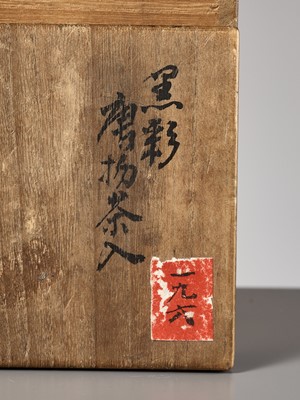 黒彩
唐物茶入
一九六